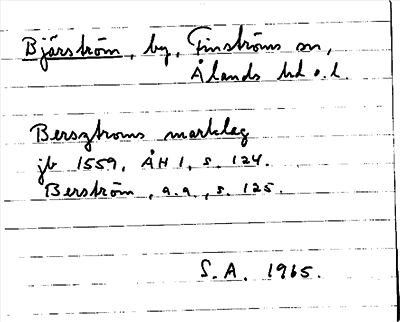 Bjärström, by, Finströms sn,
Ålands hd o. l.
Bersztroms marklag
jb 1559, ÅH 1, s. 124.
Berström, a.a., s. 125.
S.A. 1965.